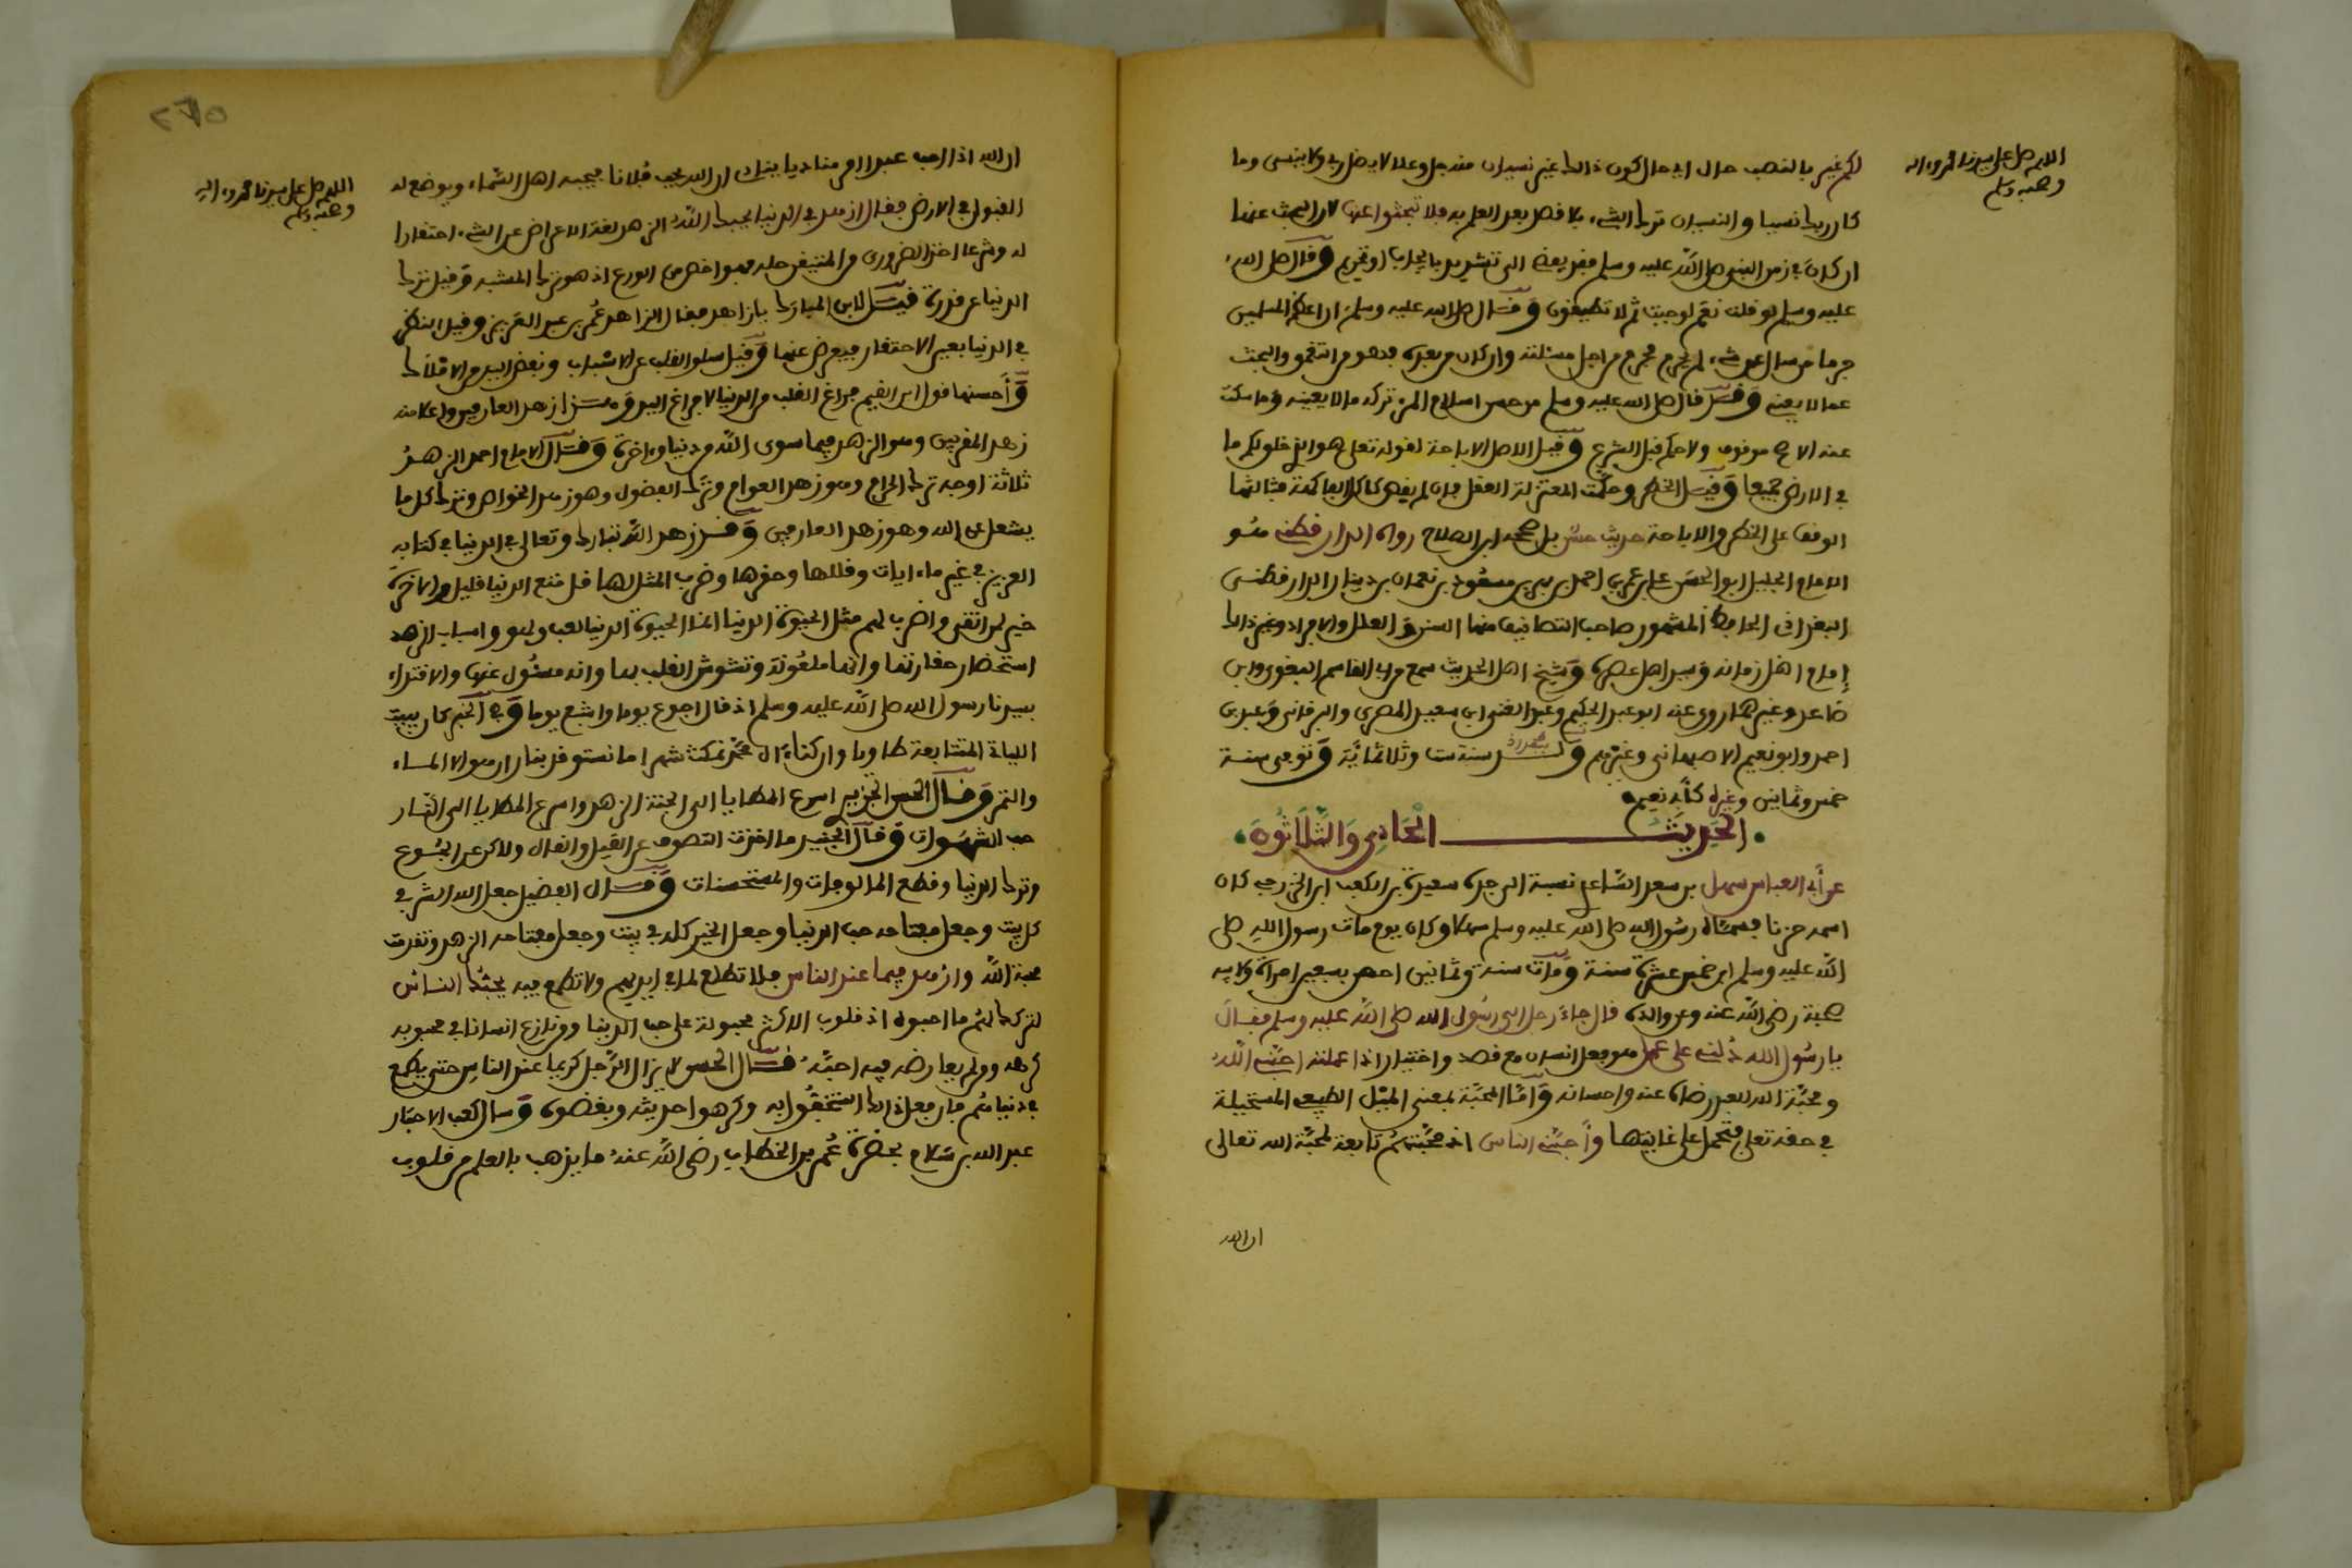 اللهم صل على سيدنا محمد وءاله
وصحبه وسلم
لكم غير بالنصب حال اي حال كون ذالك غير نسيان منه جل وعلا لا يضل ربي ولا ينسى وما
كان ربك نسيا والنسيان ترك الشيء بلا قصد بعد العلم به فلا تبحثوا عنها لان البحث عنها
ان كان في زمن النبي صلى الله عليه وسلم فقد يفضي الى تشديد بايجاب او تحريم وقال صلى الله
عليه وسلم لو قلت نعم لوجبت ثم لا تطيقون وقال صلى الله عليه وسلم ان اعظم المسلمين
جرما من سال عن شيء لم يحرم فحرم من اجل مسئلته وان كان من بعده فهو من التعمق والبحث
عما لا يعني وقد قال صلى الله عليه وسلم من حسن اسلام المرء تركه ما لا يعنيه وما سكت
عنه الاصح موقوف ولا حكم قبل الشرع وقيل الاصل الاباحة لقوله تعلى هو الذي خلق لكم ما
في الارض جميعا وقيل الحظر وحكمت المعتزلة العقل فان لم يقض كاكل الفاكهة فثالثها
الوقف على الحظر والاباحة حديث حسن بل صححه ابن الصلاح رواه الدارقطني هو
الامام الجليل ابو الحسن علي بن عمر بن احمد بن مهدي بن مسعود بن نعمان بن دينار الدارقطني
البغدادي الحافظ المشهور صاحب التصانيف منها السنن والعلل والافراد وغير ذالك
إمام اهل زمانه وسيد اهل عصره وشيخ اهل الحديث سمع من ابي القاسم البغوي وابن
صاعد وغيرهما روى عنه ابو عبد الحكيم وعبد الغني ابن سعيد المصري والبرقاني وعبد بن
احمد وابو نعيم الاصبهاني وغيرهم ولد ببغداد سنة ست وثلاثمائة وتوفي سنة
خمس وثمانين وغيره كأبي نعيم
الحديث الحادي والثلاثون
عن أبي العباس سهل بن سعد الساعدي نسبة الى جده سعيدة بن كعب ابن الخزرجي كان
اسمه حزنا فسماه رسول الله صلى الله عليه وسلم سهلا وكان يوم مات رسول الله صلى
الله عليه وسلم ابن خمس عشرة سنة ومات سنة وثمانين احصن بسبعين امراة ولابيه
صحبة رضي الله عنه وعن والده قال جاء رجل الى رسول الله صلى الله عليه وسلم فقال
يا رسول الله دلني على عمل هو فعل انسان مع قصد واختيار اذا عملته احبني الله
ومحبة الله للعبد رضاه عنه واحسانه وأما المحبة بمعنى الميل الطبيعي المستحيلة
في حقه تعلى فتحمل على غايتها وأحبني الناس اذ محبتهم تابعة لمحبة الله تعالى
ان الله
٢٦٥
اللهم صل على سيدنا محمد وءاله
وصحبه وسلم
ان الله اذا احب عبدا امر مناديا ينادي ان الله يحب فلانا فيحبه اهل السماء ويوضع له
القبول في الارض فقال ازهد في الدنيا يحبك الله الزهد لغة الاعراض عن الشيء احتقارا
له وشرعا اخذ الضروري من المتيقن حله فهو اخص من الورع اذ هو ترك المشتبه وقيل ترك
الدنيا عن قدرة قيل لابن المبارك يا زاهد فقال الزاهد عمر بن عبد العزيز وقيل النظر
في الدنيا بعين الاحتقار فيعرض عنها وقيل سلو القلب عن الاسباب ونفض اليد من الاملاك
وأحسنها قول ابن القيم فراغ القلب من الدنيا لا فراغ اليد وهذا زهد العارفين واعلا منه
زهد المقربين وهو الزهد فيما سوى الله من دنيا واخرى وقال الامام احمد الزهد
ثلاثة اوجه ترك الحرام وهو زهد العوام وترك الفضول وهو زهد الخواص وترك كل ما
يشغل عن الله وهو زهد العارفين وقد زهد الله تبارك وتعالى في الدنيا في كتابه
العزيز في غير ما ءايات وقللها وحقرها وضرب المثل لها قل متع الدنيا قليل والاخرة
خير لمن اتقى واضرب لهم مثل الحيوة الدنيا انما الحيوة الدنيا لعب ولهو واسباب الزهد
استحضار حقارتها وانها ملعونة وتشوش القلب بها وانه مسئول عنها والاقتداء
بسيدنا رسول الله صلى الله عليه وسلم اذ قال اجوع يوما واشبع يوما وفي الخبر كان يبيت
الليالي المتتابعة طاويا وان كنا ءال محمد نمكث شهرا ما نستوقد بنار ان هو الا الماء
والتمر وقال الحسن اسرع المطايا الى الجنة الزهد واسرع المطايا الى النار
حب الشهوات وقال الجنيد ما اخذت التصوف عن القيل والقال ولاكن عن الجوع
وترك الدنيا وقطع المالوفات والمستحسنات وقال الفضيل جعل الله الشر في
كل بيت وجعل مفتاحه حب الدنيا وجعل الخير كله في بيت وجعل مفتاحه الزهد وتقدمت
محبة الله وازهد فيما عند الناس فلا تطلع لما في ايديهم ولا تطمع فيه يحبك الناس
لتركك لهم ما احبوه اذ قلوب الاكثر مجبولة على حب الدنيا ومن نازع انسانا في محبوبه
كرهه ومن لم يعارضه فيه احبه قال الحسن لا يزال الرجل كريما عند الناس حتى يطمع
في دنياهم فان فعل ذالك استخفوا به وكرهوا حديثه وبغضوه وسال كعب الاحبار
عبد الله بن سلام بحضرة عمر بن الخطاب رضي الله عنه ما يذهب بالعلم من قلوب